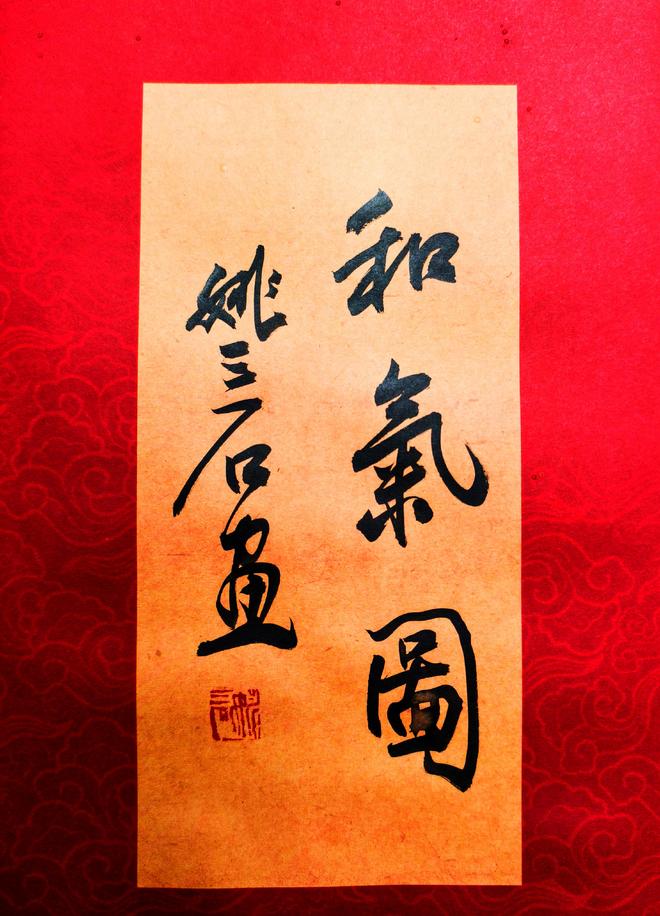 和氣圖
姚三石畫